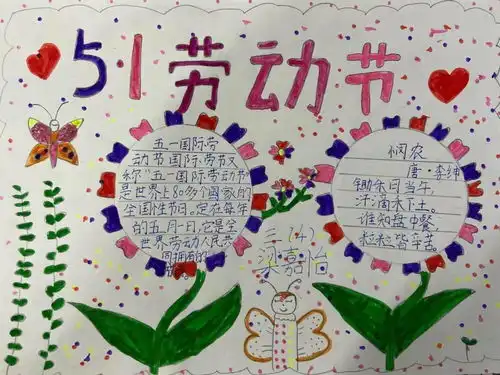 5·1劳动节
五一国际劳
动节国际劳节又
称"五一国际劳动节
是世界上80多个国家的
全国性节日。定在每年
的五月一日。它是全
世界劳动人民共
同拥有的
悯农
唐·李绅
锄禾日当午,
汗滴禾下土。
谁知盘中餐,
粒粒皆辛苦。
三(4)
梁嘉怡